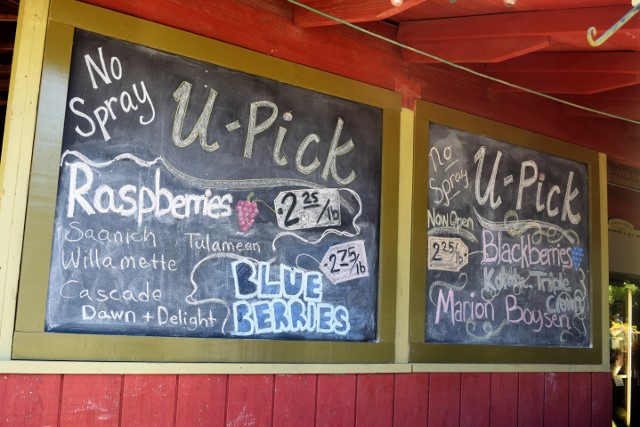 No
Spray
U-Pick
Raspberries
2 25/lb
Saanich
Tulameen
Willamette
2.75/lb
Cascade
Dawn + Delight
BLUE
BERRIES
No
Spray
U-Pick
Now Open
2 25/lb
Blackberries
Triple
Crown
Marion Boysen